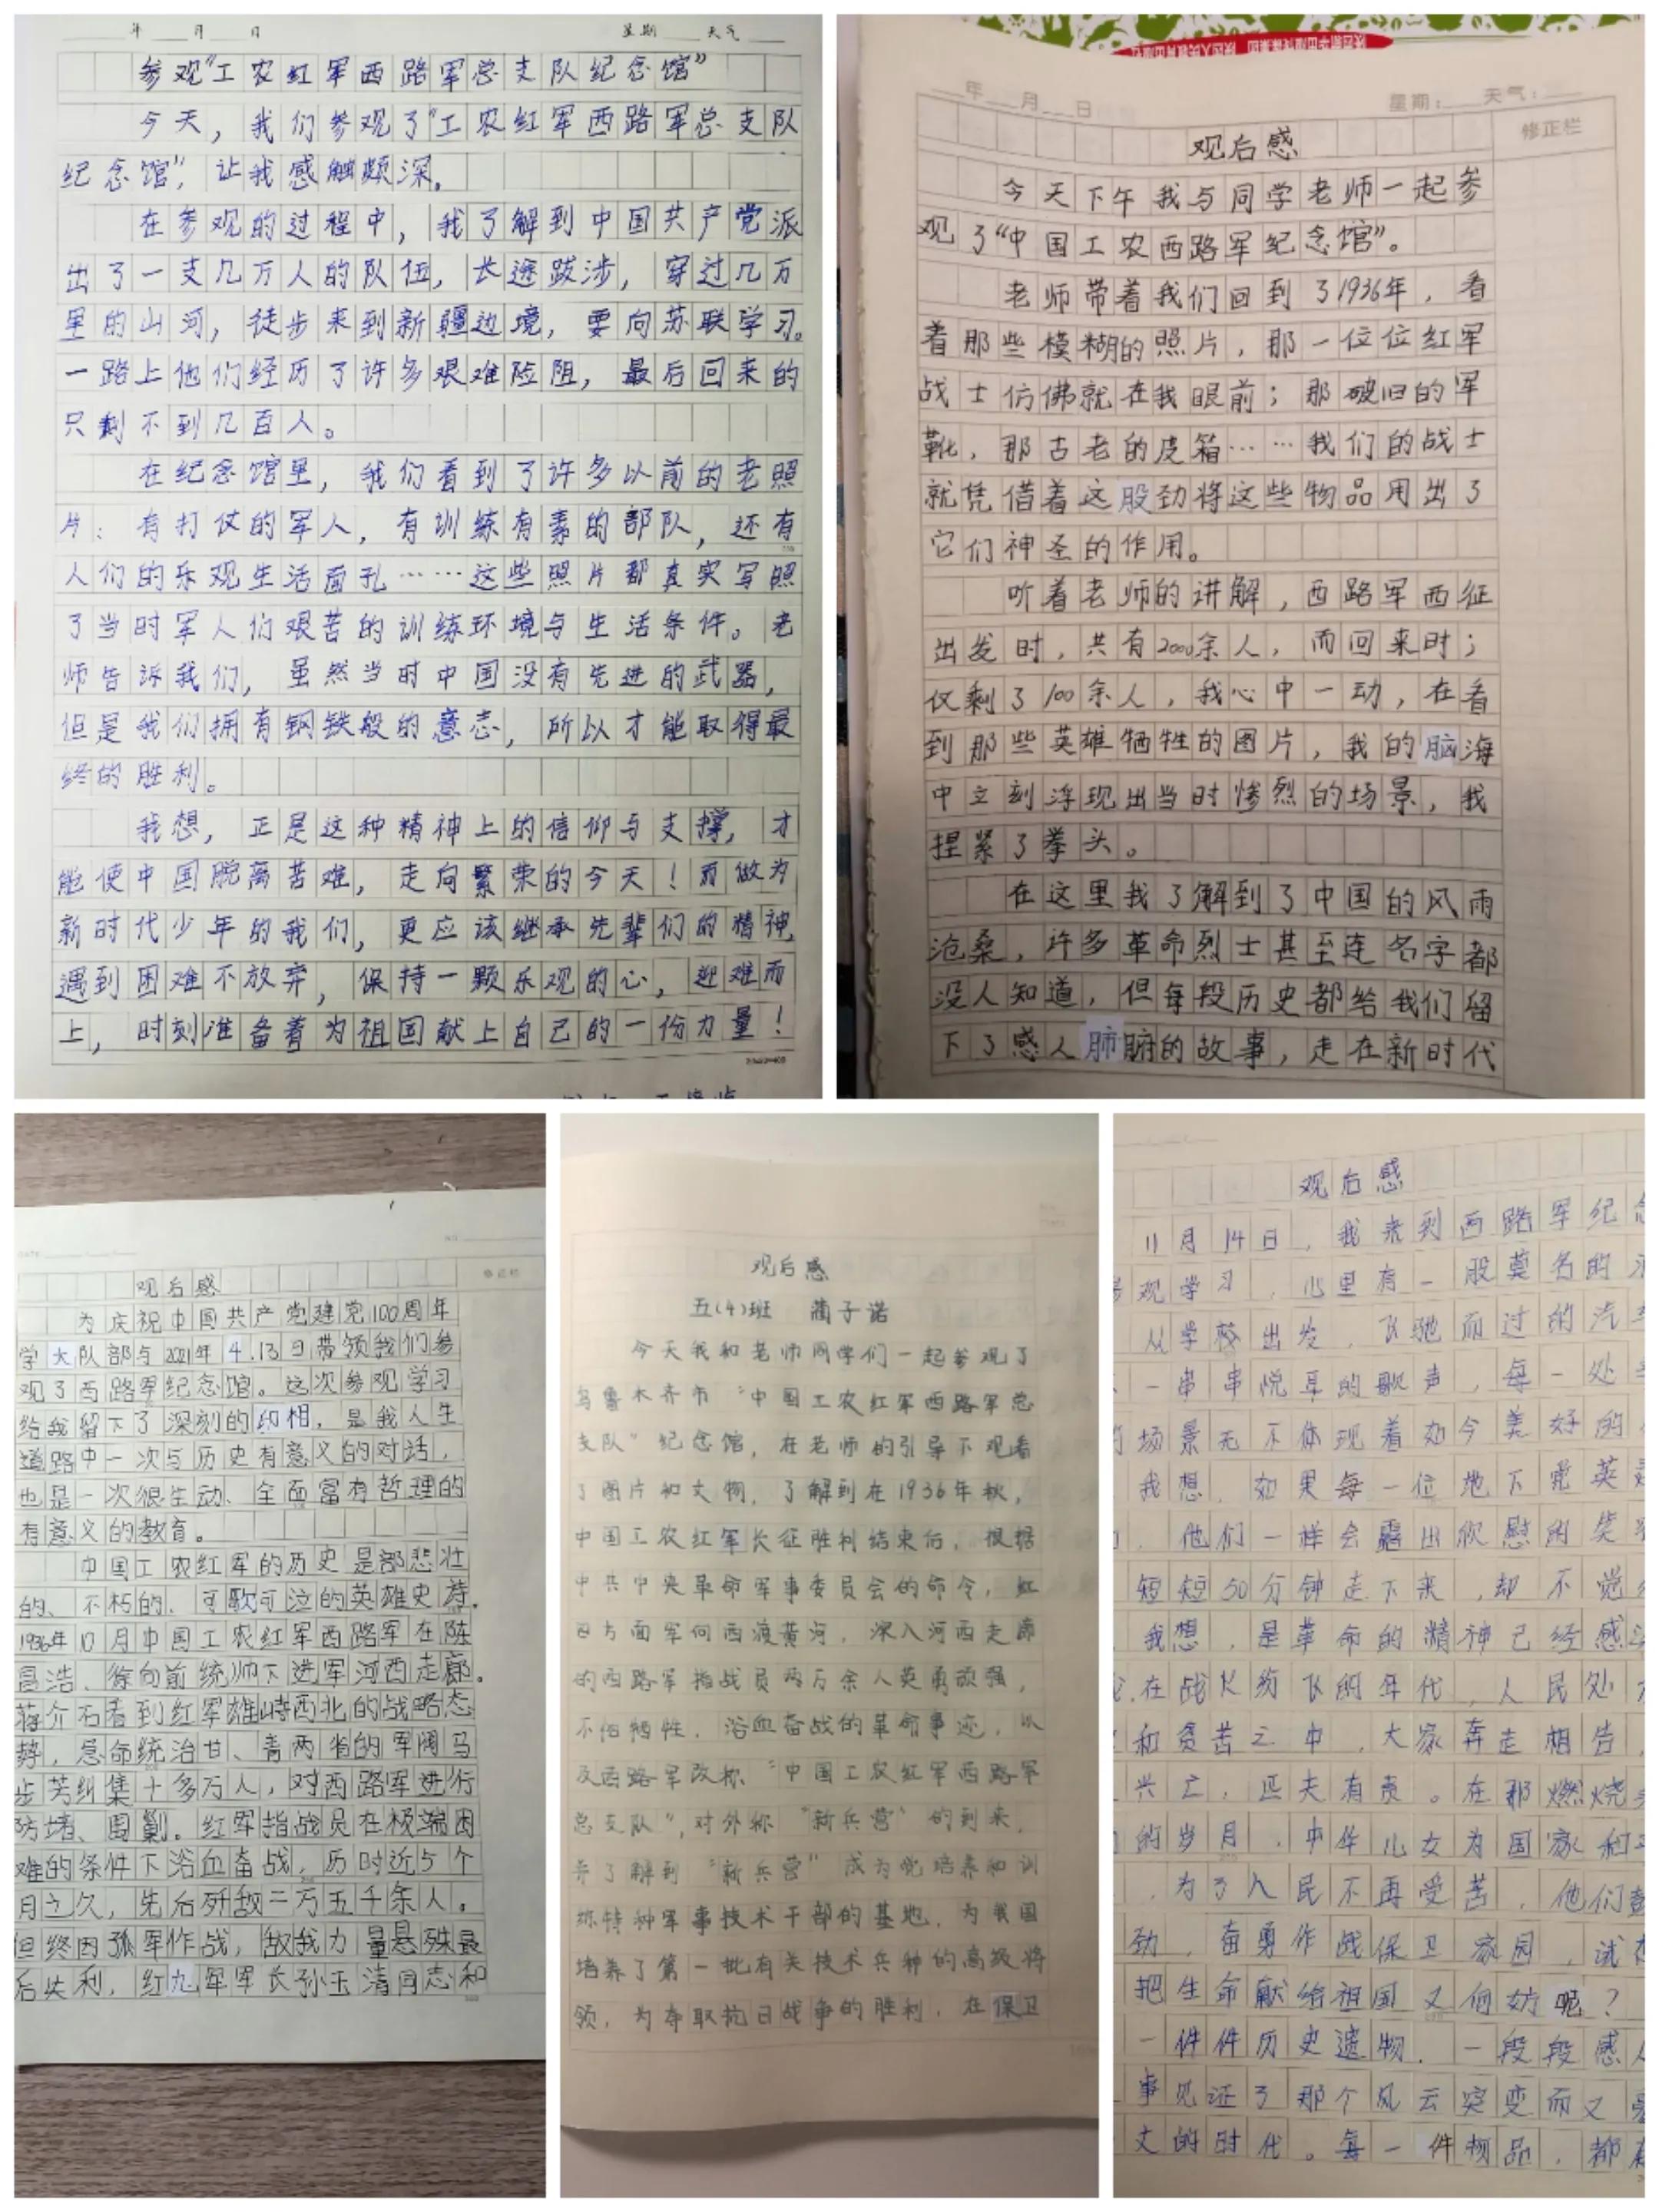 年 月 日 星期 天气
参观“工农红军西路军总支队纪念馆”
今天，我们参观了“工农红军西路军总支队
纪念馆”，让我感触颇深。
在参观的过程中，我了解到中国共产党派
出了一支几万人的队伍，长途跋涉，穿过几万
里的山河，徒步来到新疆边境，要向苏联学习。
一路上他们经历了许多艰难险阻，最后回来的
只剩不到几百人。
在纪念馆里，我们看到了许多以前的老照
片：有打仗的军人，有训练有素的部队，还有
人们的乐观生活面孔……这些照片都真实写照
了当时军人们艰苦的训练环境与生活条件。老
师告诉我们，虽然当时中国没有先进的武器，
但是我们拥有钢铁般的意志，所以才能取得最
终的胜利。
我想，正是这种精神上的信仰与支撑，才
能使中国脱离苦难，走向繁荣的今天！而做为
新时代少年的我们，更应该继承先辈们的精神，
遇到困难不放弃，保持一颗乐观的心，迎难而
上，时刻准备着为祖国献上自己的一份力量！
年 月 日 星期： 天气：
修正栏
观后感
今天下午我与同学老师一起参
观了“中国工农西路军纪念馆”。
老师带着我们回到了1936年，看
着那些模糊的照片，那一位位红军
战士仿佛就在我眼前；那破旧的军
靴，那古老的皮箱……我们的战士
就凭借着这股劲将这些物品用出了
它们神圣的作用。
听着老师的讲解，西路军西征
出发时，共有2000余人，而回来时；
仅剩了100余人，我心中一动，在看
到那些英雄牺牲的图片，我的脑海
中立刻浮现出当时惨烈的场景，我
捏紧了拳头。
在这里我了解到了中国的风雨
沧桑，许多革命烈士甚至连名字都
没人知道，但每段历史都给我们留
下了感人肺腑的故事，走在新时代
观后感
为庆祝中国共产党建党100周年
学大队部与2021年4.13日带领我们参
观了西路军纪念馆。这次参观学习
给我留下了深刻的印相，是我人生
道路中一次与历史有意义的对话，
也是一次很生动、全面富有哲理的
有意义的教育。
中国工农红军的历史是部悲壮
的、不朽的、可歌可泣的英雄史诗。
1936年10月中国工农红军西路军在陈
昌浩、徐向前统帅下进军河西走廊。
蒋介石看到红军雄峙西北的战略态
势，急命统治甘、青两省的军阀马
步芳纠集十多万人，对西路军进行
防堵、围剿。红军指战员在极端困
难的条件下浴血奋战，历时近5个
月之久，先后歼敌二万五千余人。
但终因孤军作战，敌我力量悬殊最
后失利，红九军军长孙玉清同志和
观后感
五(4)班 蔺子诺
今天我和老师同学们一起参观了
乌鲁木齐市“中国工农红军西路军总
支队”纪念馆，在老师的引导下观看
了图片和文物，了解到在1936年秋，
中国工农红军长征胜利结束后，根据
中共中央革命军事委员会的命令，红
四方面军向西渡黄河，深入河西走廊
的西路军指战员两万余人英勇顽强，
不怕牺牲，浴血奋战的革命事迹，以
及西路军改称“中国工农红军西路军
总支队”，对外称“新兵营”的到来，
并了解到“新兵营”成为党培养和训
练特种军事技术干部的基地，为我国
培养了第一批有关技术兵种的高级将
领，为夺取抗日战争的胜利，在保卫
观后感
11月14日，我来到西路军纪念
观学习，心里有一股莫名的
从学校出发，飞驰而过的汽车
一串串悦耳的歌声，每一处
场景无不体现着如今美好的
我想，如果每一位地下党英
，他们一样会露出欣慰的笑容
短短50分钟走下来，却不觉
我想，是革命的精神已经感
在战火纷飞的年代，人民处
和贫苦之中，大家奔走相告，
兴亡，匹夫有责。在那燃烧
的岁月，中华儿女为国家和
，为了人民不再受苦，他们
劲，奋勇作战保卫家园，试
把生命献给祖国又何妨呢？
一件件历史遗物，一段段感人
事见证了那个风云突变而又
文的时代。每一件物品，都